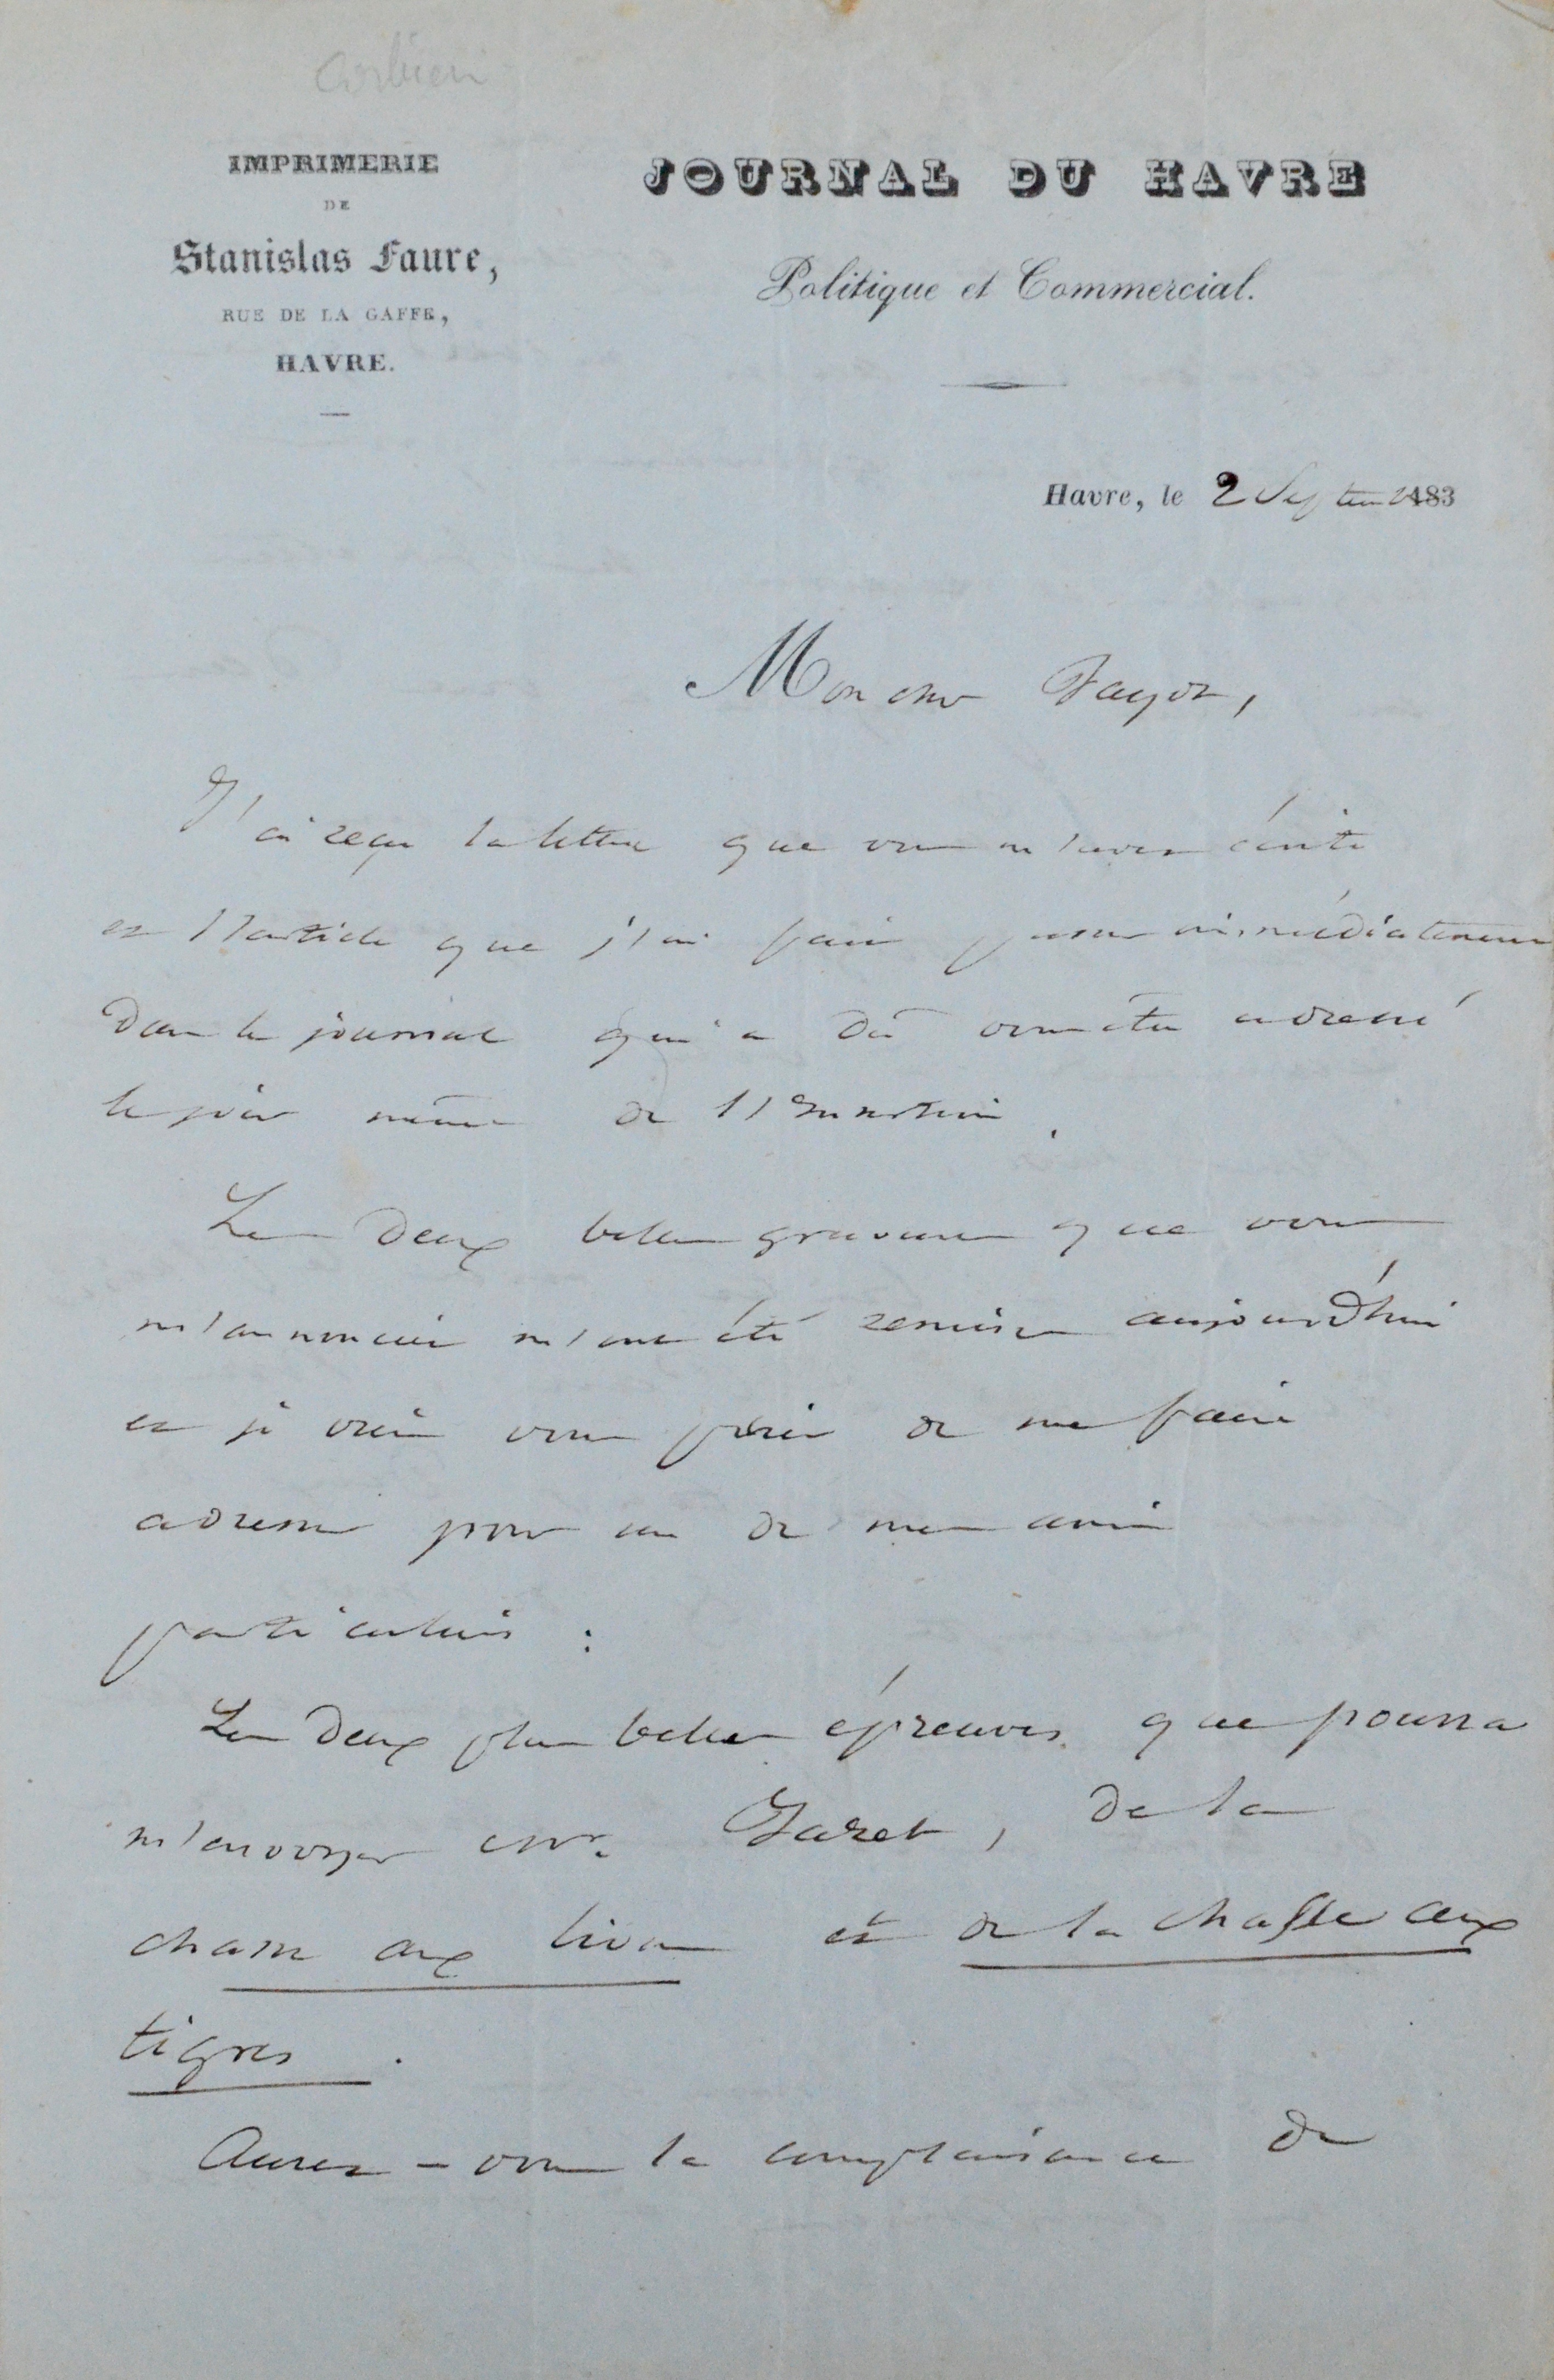 Corbière
IMPRIMERIE
DE
Stanislas Faure,
RUE DE LA GAFFE,
HAVRE.
JOURNAL DU HAVRE
Politique et Commercial.
Havre, le 2 Septembre 183
Mon cher Fayot,
J'ai reçu la lettre que vous m'avez écrite
et l'article que j'ai fait passer immédiatement
dans le journal qui a dû vous être adressé
le jour même de l'insertion.
Les deux belles gravures que vous
m'annonciez m'ont été remises aujourd'hui
et je viens vous prier de me faire
adresser pour un de mes amis
particuliers :
Les deux plus belles épreuves que pourra
m'envoyer Mr. Jazet, de la
chasse aux lions et de la chasse aux
tigres.
Aurez-vous la complaisance de